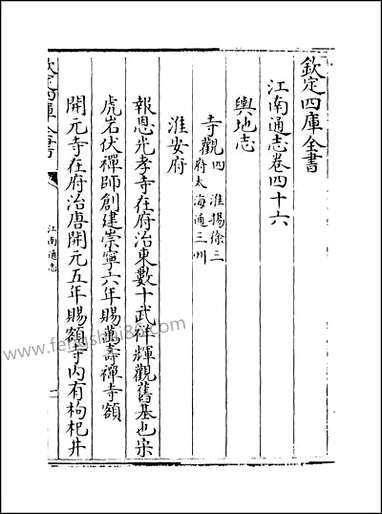 欽定四庫全書
江南通志卷四十六
輿地志
寺觀四 淮揚徐三
府太海通三州
淮安府
報恩光孝寺在府治東數十武祥輝觀舊基也宋
虎岩伏禪師創建崇寧六年賜萬壽禪寺額
開元寺在府治唐開元五年賜額寺内有枸杞井
欽定四庫全書
江南通志
一